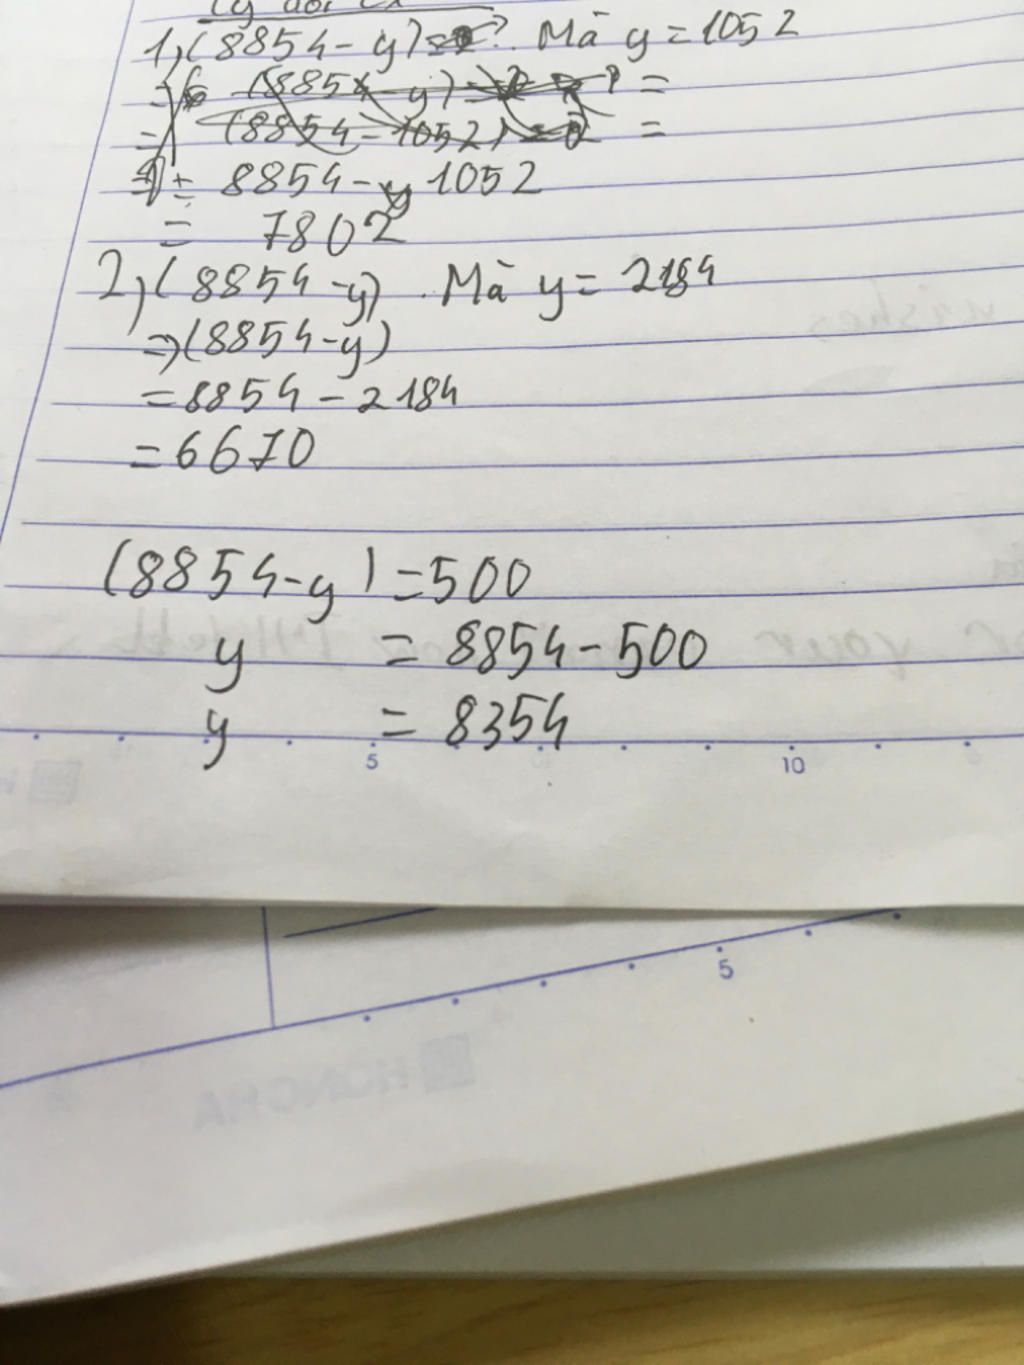 1, (8854 - y) = ? . Mà y = 1052
= (8854 - y) =
= (8854 - 1052) =
= 8854 - y 1052
= 7802
2, (8854 - y) . Mà y = 2184
=> (8854 - y)
= 8854 - 2184
= 6670
(8854 - y) = 500
y = 8854 - 500
y = 8354
5 10
5
HONGHA